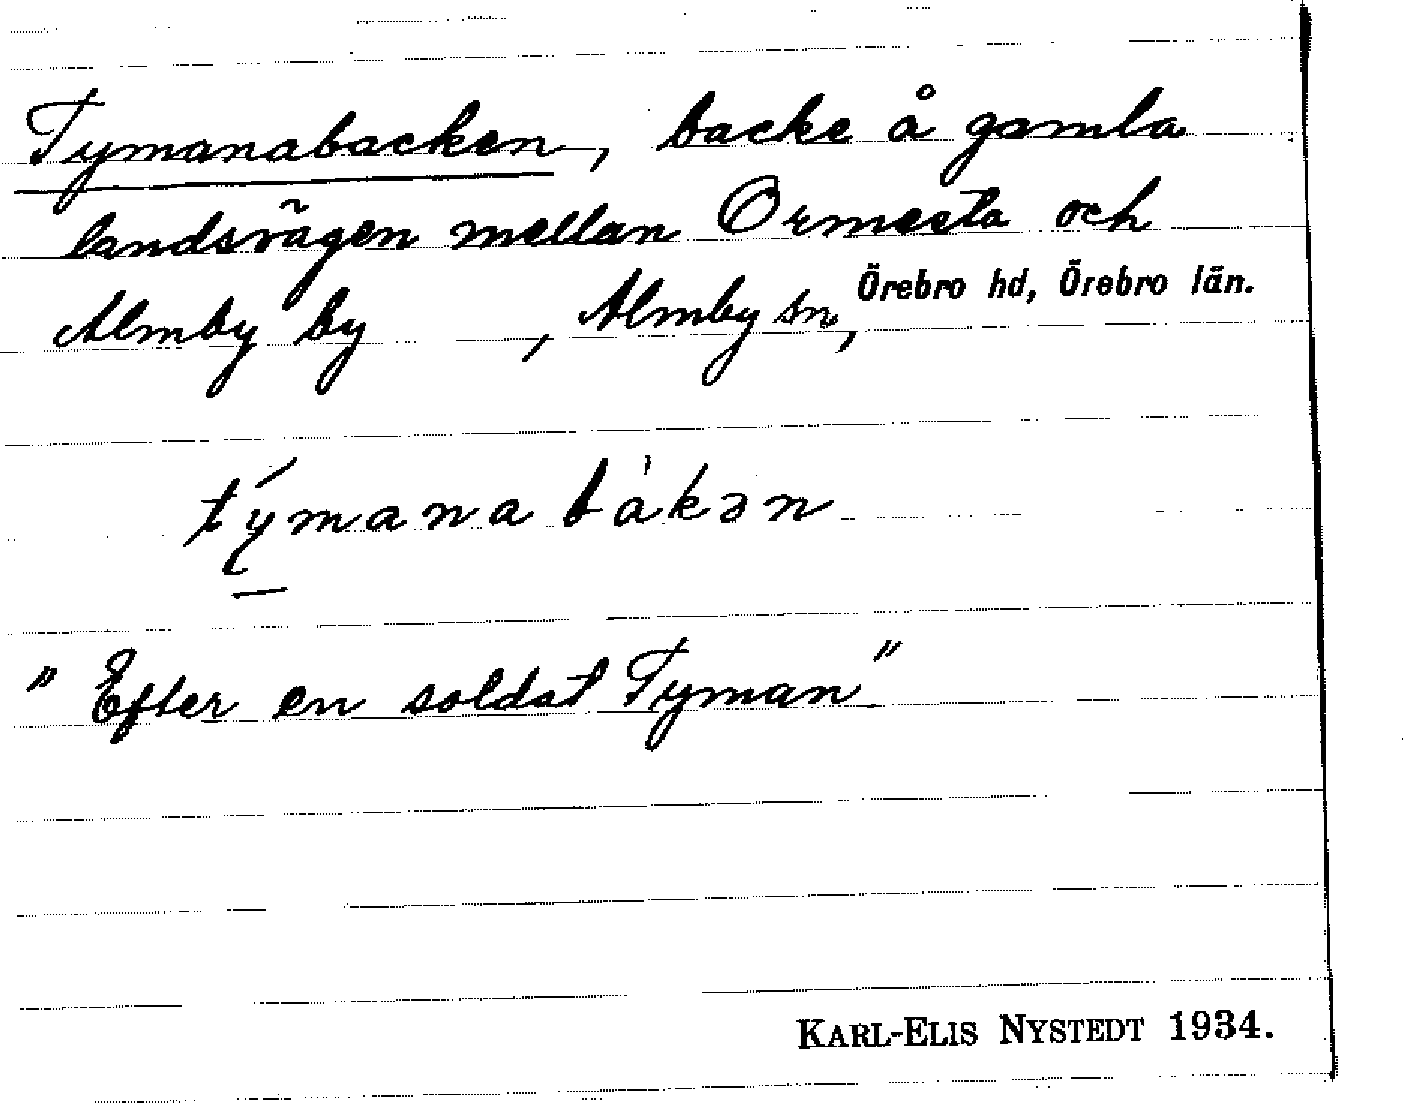 Tymanabacken, backe å gamla
landsvägen mellan Ormesta och
Almby by , Almby sn, Örebro hd, Örebro län.
týmana bàkən
"Efter en soldat Tyman"
KARL-ELIS NYSTEDT 1934.